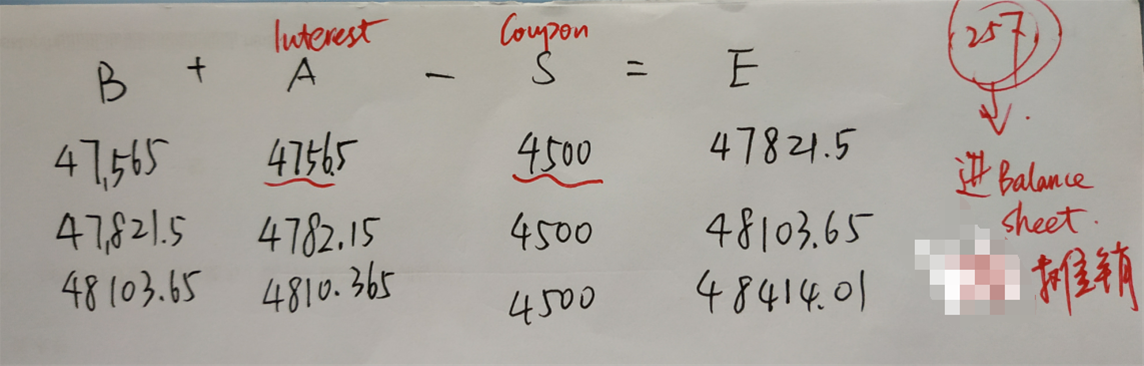 Interest Coupon
B + A - S = E
257
47,565 4756.5 4500 47821.5
进Balance
sheet.
47,821.5 4782.15 4500 48103.65
摊销
48103.65 4810.365 4500 48414.01